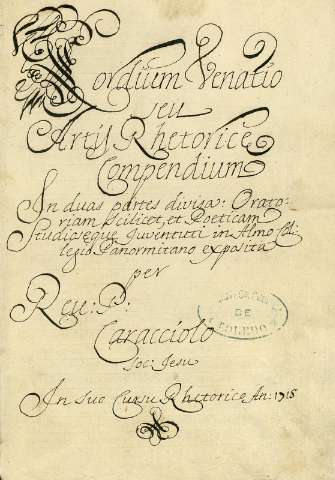 Cordium Venatio
seu
Artis Rhetoricę
Compendium
In duas partes divisa: Orato-
riam scilicet, et Poeticam
Studiosęque Iuventuti in Almo Col:
legio Panormitano exposita
per
Reu: P:
Caracciolo
Soc: Iesu
DE
TOLEDO
In suo Cursu Rhetoricę An: 1715